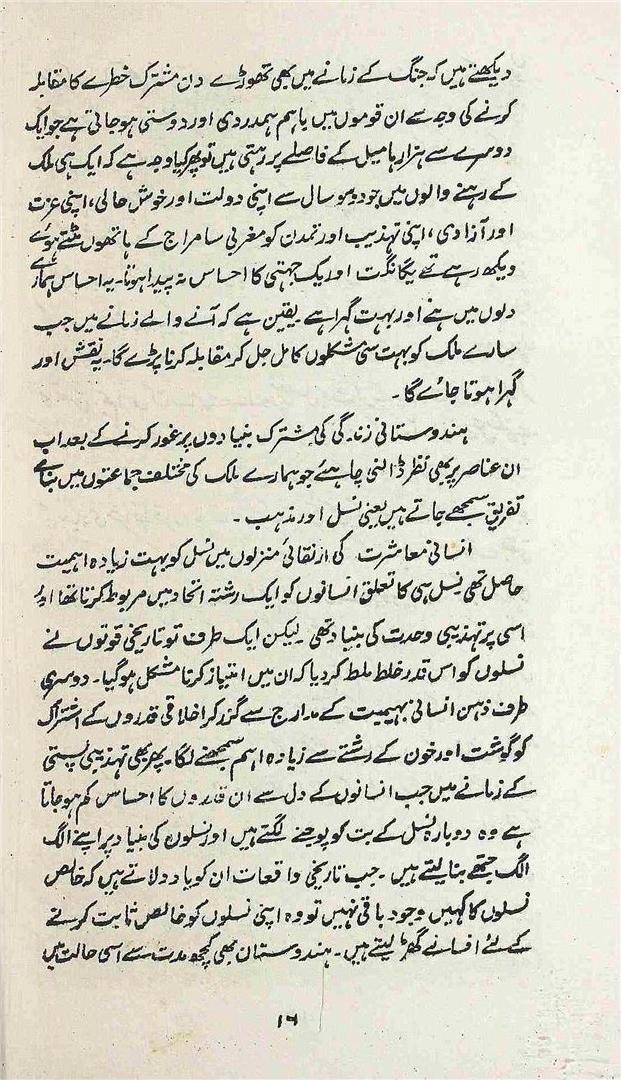 دیکھتے ہیں کہ جنگ کے زمانے میں بھی تھوڑے دن مشترک خطرے کا مقابلہ
کرنے کی وجہ سے ان قوموں میں باہم ہمدردی اور دوستی ہو جاتی ہے جو ایک
دوسرے سے ہزارہا میل کے فاصلے پر رہتی ہیں تو پھر کیا وجہ ہے کہ ایک ہی ملک
کے رہنے والوں میں جو دو سو سال سے اپنی دولت اور خوش حالی، اپنی عزت
اور آزادی، اپنی تہذیب اور تمدن کو مغربی سامراج کے ہاتھوں مٹتے ہوئے
دیکھ رہے تھے یگانگت اور یک جہتی کا احساس نہ پیدا ہوتا۔ یہ احساس ہمارے
دلوں میں ہے اور بہت گہرا ہے۔ یقین ہے کہ آنے والے زمانے میں جب
سارے ملک کو بہت سی مشکلوں کا مل جل کر مقابلہ کرنا پڑے گا۔ یہ نقش اور
گہرا ہوتا جائے گا۔
ہندوستانی زندگی کی مشترک بنیادوں پر غور کرنے کے بعد اب
ان عناصر پر بھی نظر ڈالنی چاہئے جو ہمارے ملک کی مختلف جماعتوں میں بنائے
تفریق سمجھے جاتے ہیں یعنی نسل اور مذہب۔
انسانی معاشرت کی ارتقائی منزلوں میں نسل کو بہت زیادہ اہمیت
حاصل تھی نسل ہی کا تعلق انسانوں کو ایک رشتہ اتحاد میں مربوط کرتا تھا اور
اسی پر تہذیبی وحدت کی بنیاد تھی۔ لیکن ایک طرف تو تاریخی قوتوں نے
نسلوں کو اس قدر خلط ملط کر دیا کہ ان میں امتیاز کرنا مشکل ہو گیا۔ دوسری
طرف ذہن انسانی بہیمیت کے مدارج سے گزر کر اخلاقی قدروں کے اشتراک
کو گوشت اور خون کے رشتے سے زیادہ اہم سمجھنے لگا۔ پھر بھی تہذیبی پستی
کے زمانے میں جب انسانوں کے دل سے ان قدروں کا احساس کم ہو جاتا
ہے وہ دوبارہ نسل کے بت کو پوجنے لگتے ہیں اور نسلوں کی بنیاد پر اپنے الگ
الگ جتھے بنا لیتے ہیں۔ جب تاریخی واقعات ان کو یاد دلاتے ہیں کہ خالص
نسلوں کا کہیں وجود باقی نہیں تو وہ اپنی نسلوں کو خالص ثابت کرنے
کے لئے افسانے گھڑ لیتے ہیں۔ ہندوستان بھی کچھ مدت سے اسی حالت میں
۱۶